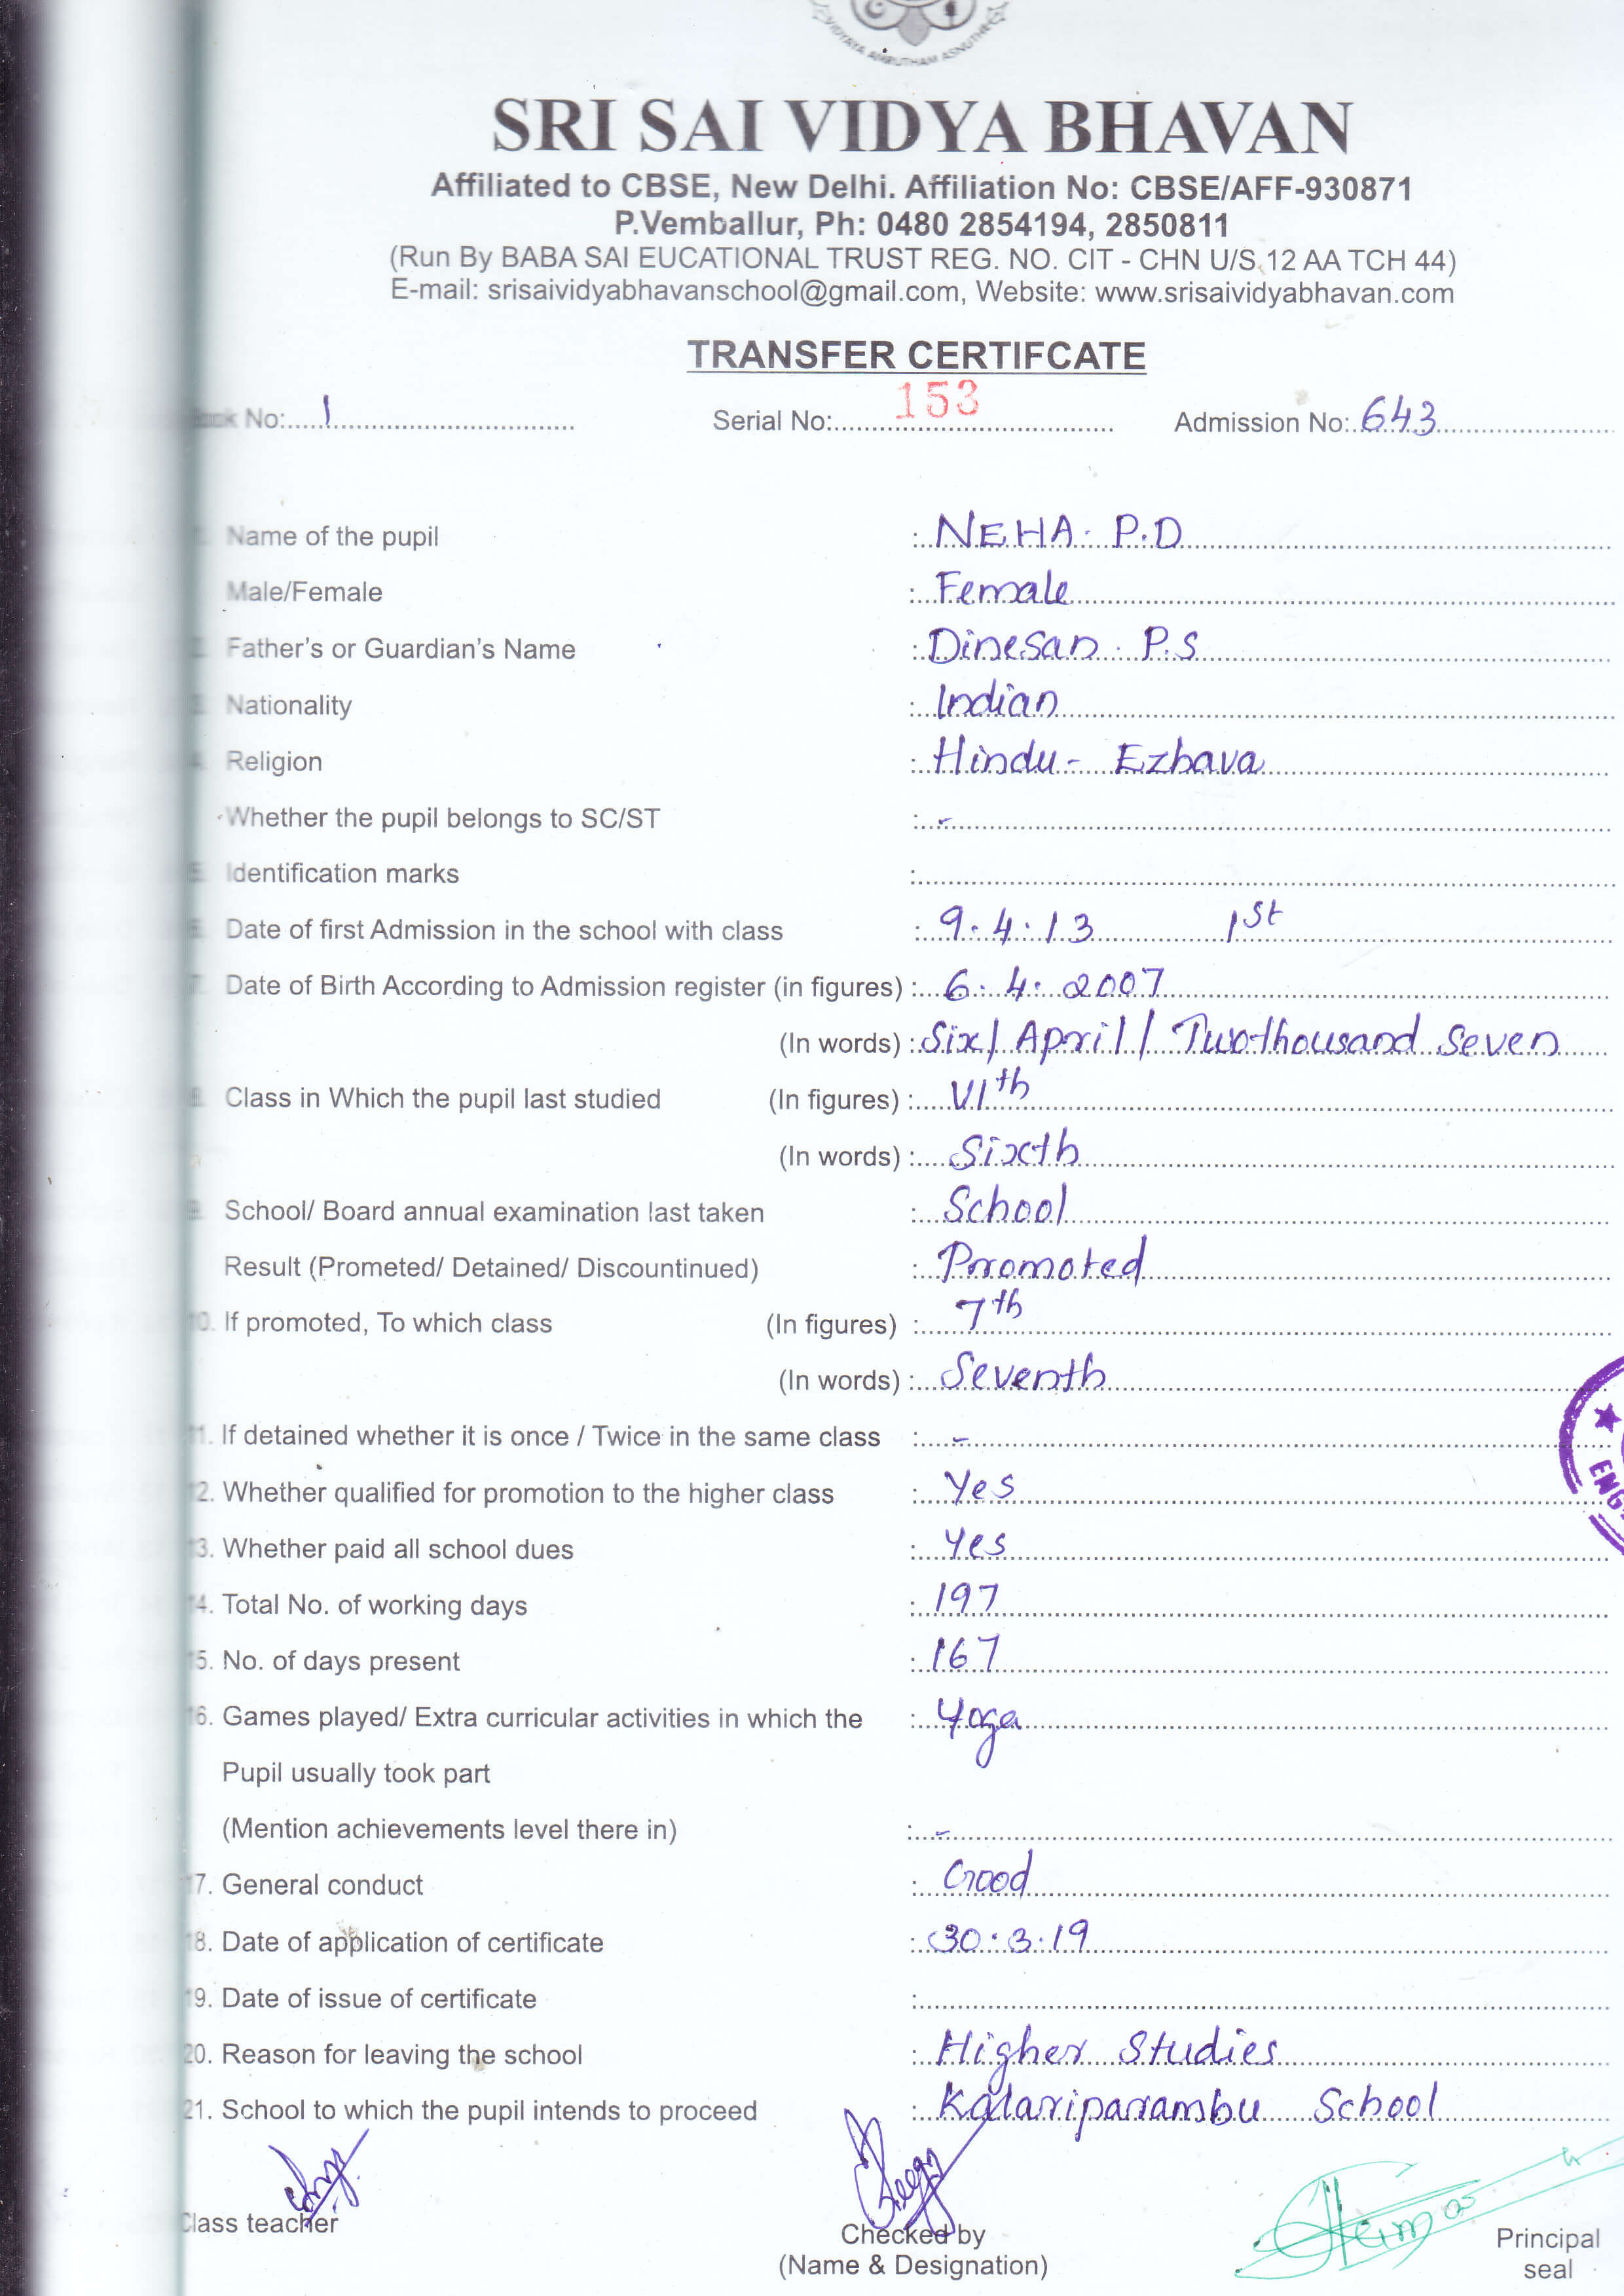 VIDYAYA AMRUTHAM ASNUTHE
SRI SAI VIDYA BHAVAN
Affiliated to CBSE, New Delhi. Affiliation No: CBSE/AFF-930871
P.Vemballur, Ph: 0480 2854194, 2850811
(Run By BABA SAI EUCATIONAL TRUST REG. NO. CIT - CHN U/S.12 AA TCH 44)
E-mail: srisaividyabhavanschool@gmail.com, Website: www.srisaividyabhavan.com
TRANSFER CERTIFCATE
Book No: 1 Serial No: 153 Admission No: 643
1. Name of the pupil : NEHA. P.D
Male/Female : Female
2. Father's or Guardian's Name : Dinesan. P.S
3. Nationality : Indian
4. Religion : Hindu - Ezhava
Whether the pupil belongs to SC/ST : -
5. Identification marks :
6. Date of first Admission in the school with class : 9.4.13 1st
7. Date of Birth According to Admission register (in figures) : 6.4.2007
(In words) : Six/ April/ Twothousand Seven
8. Class in Which the pupil last studied (In figures) : VIth
(In words) : Sixth
9. School/ Board annual examination last taken : School
Result (Prometed/ Detained/ Discountinued) : Promoted
10. If promoted, To which class (In figures) : 7th
(In words) : Seventh
11. If detained whether it is once / Twice in the same class : -
12. Whether qualified for promotion to the higher class : Yes
13. Whether paid all school dues : Yes
14. Total No. of working days : 197
15. No. of days present : 167
16. Games played/ Extra curricular activities in which the : Yoga
Pupil usually took part
(Mention achievements level there in) : -
17. General conduct : Good
18. Date of application of certificate : 30.3.19
19. Date of issue of certificate :
20. Reason for leaving the school : Higher Studies
21. School to which the pupil intends to proceed : Kalariparambu School
Class teacher
Checked by
(Name & Designation)
Principal
seal
ENG